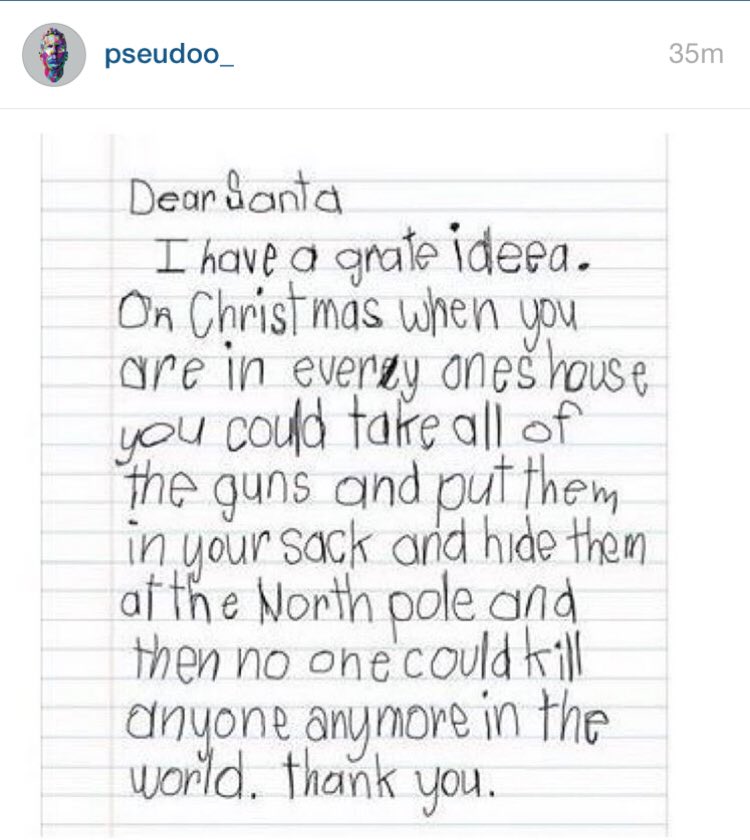 pseudoo_
35m
Dear Santa
I have a grate ideea.
On Christmas when you
are in everey ones house
you could take all of
the guns and put them
in your sack and hide them
at the North pole and
then no one could kill
anyone anymore in the
world. thank you.